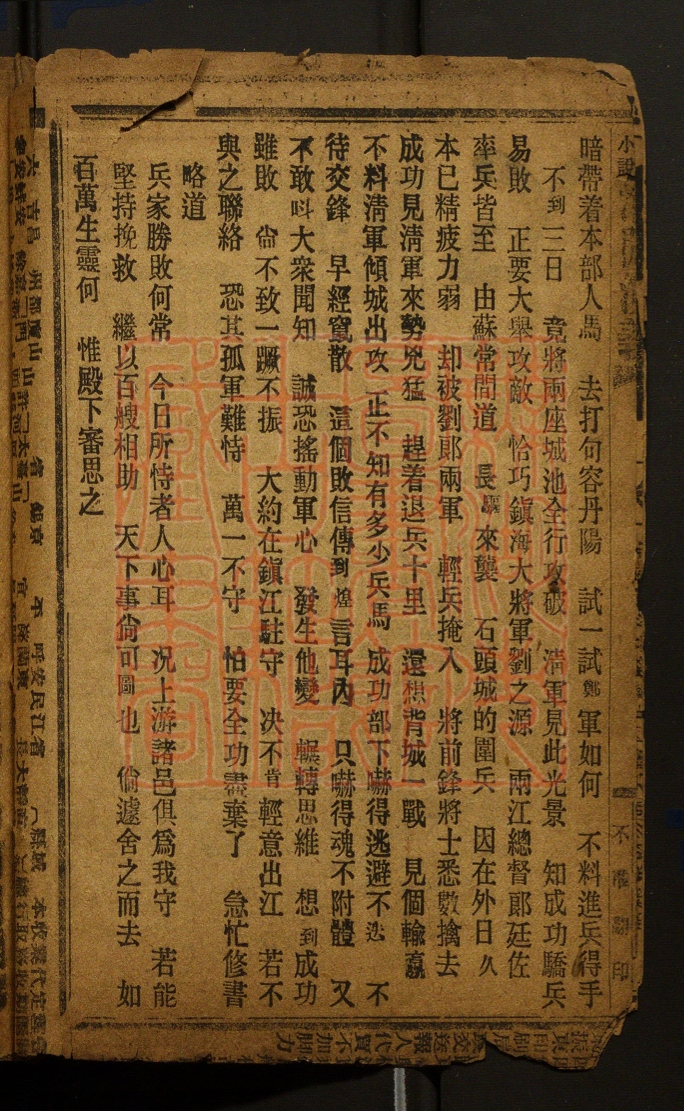 暗帶着本部人馬　去打句容丹陽　試一試鄭軍如何　不料進兵得手
不到三日　竟將兩座城池全行攻破　清軍見此光景　知成功驕兵
易敗　正要大舉攻敵　恰巧鎮海大將軍劉之源　兩江總督郎廷佐
率兵皆至　由蘇常間道　長驅來襲　石頭城的圍兵　因在外日久
本已精疲力弱　却被劉郎兩軍　輕兵掩入　將前鋒將士悉數擒去
成功見清軍來勢兇猛　趕着退兵十里　還想背城一戰　見個輸贏
不料清軍傾城出攻　正不知有多少兵馬　成功部下嚇得逃避不迭　不
待交鋒　早經竄散　這個敗信傳到煌言耳內　只嚇得魂不附體　又
不敢呌大衆聞知　誠恐搖動軍心　發生他變　輾轉思維　想到成功
雖敗　尙不致一蹶不振　大約在鎮江駐守　决不肯輕意出江　若不
與之聯絡　恐其孤軍難恃　萬一不守　怕要全功盡棄了　急忙修書
略道
兵家勝敗何常　今日所恃者人心耳　况上游諸邑俱爲我守　若能
堅持挽救　繼以百艘相助　天下事尙可圖也　倘遽舍之而去　如
百萬生靈何　惟殿下審思之
小說
不准翻印